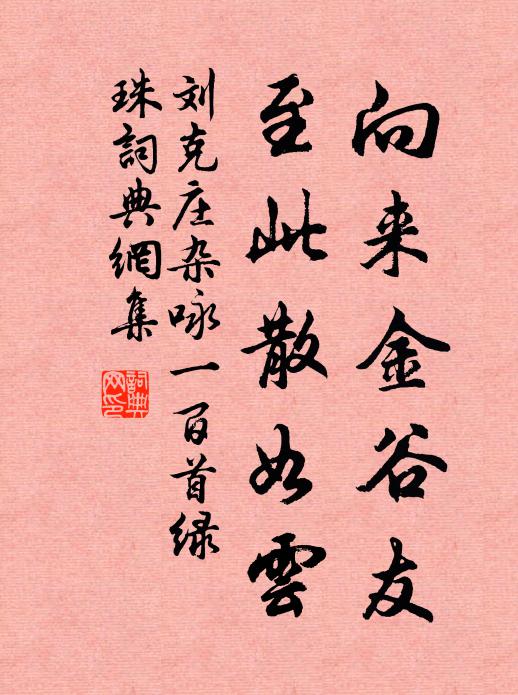 向来金谷友
至此散如雲
刘克庄杂咏一百首绿
珠詞典網集
詞典网印